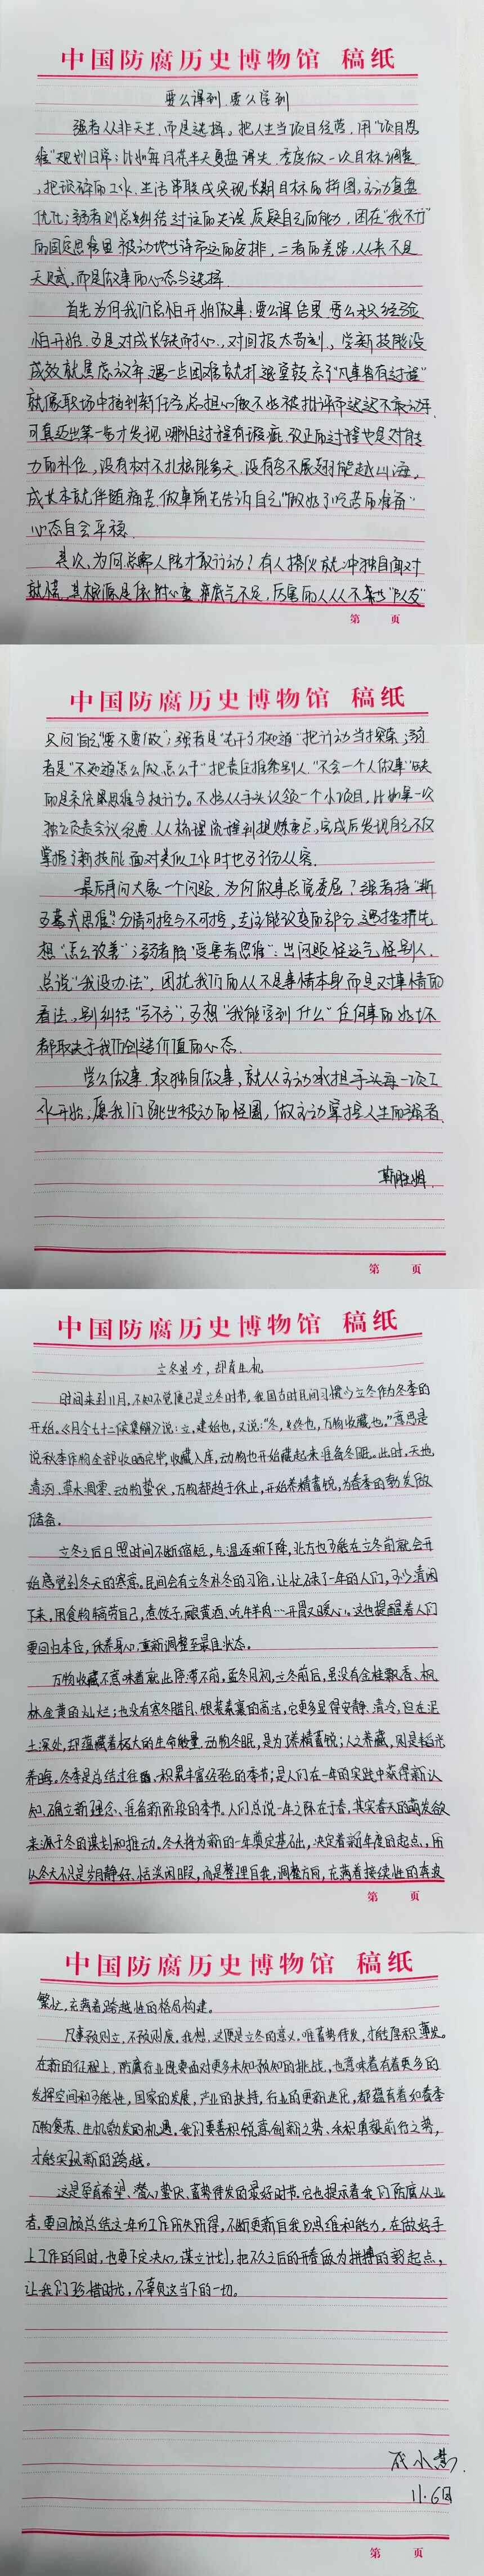 中国防腐历史博物馆 稿纸
要么得到,要么学到
强者从非天生,而是选择。把人生当项目经营,用“项目思
维”规划日常:比如每日花半天复盘得失,季度做一次目标调整
,把琐碎的工作、生活串联成实现长期目标的拼图,主动复盘
优化;弱者则总纠结过往的失误,质疑自己的能力,困在“我不行”
的固定思维里被动地等待命运的安排,二者的差路,从来不是
天赋,而是做事的心态与选择。
首先为何我们总怕开始做事:要么得结果,要么积经验
怕开始,多是对成长缺耐心,对回报太苛刻,学新技能没
成效就焦虑放弃,遇一点困难就打退堂鼓,忘了“凡事皆有过程”
就像职场中接到新任务总担心做不好被批评而迟迟不敢动手,
可真迈出第一步才发现,哪怕过程有瑕疵,改正的过程也是对能
力的补位,没有树不扎根能参天,没有鸟不展翅能越山海,
成长本就伴随痛苦,做事前先告诉自己“做好了吃苦的准备”
心态自会平稳。
其次,为何总需人陪才敢行动?有人搭伙就冲,独自面对
就慌,其根源是依附心重,底气不足,厉害的人从不靠“队友”
第 页
中国防腐历史博物馆 稿纸
只问自己“要不要做”;强者是“先干了才知道”把行动当探索;弱
者是“不知道怎么做,怎么干”把责任推给别人,“不会一个人做事”缺
的是系统思维与执行力。不妨从手头认领一个小项目,比如第一次
独立负责会议纪要,从梳理流程到提炼重点,完成后发现自己不仅
掌握了新技能,面对类似工作时也多了份从容。
最后再问大家一个问题,为何做事总觉委屈?强者持“斯
多葛式思维”:分清可控与不可控,专注能改变的部分,遇挫折先
想“怎么改善”;弱者陷“受害者思维”:出问题怪运气怪别人,
总说“我没办法”,困扰我们的从不是事情本身而是对事情的
看法,别纠结“亏不亏”,多想“我能学到什么”任何事的好坏
都取决于我们创造价值的心态。
学会做事,敢独自做事,就从主动承担手头每一次工
作开始,愿我们跳出被动的怪圈,做主动掌控人生的强者。
靳胜辉
第 页
中国防腐历史博物馆 稿纸
立冬虽冷,却有生机
时间来到11月,不知不觉便已是立冬时节,我国古时民间习惯以立冬作为冬季的
开始。《月令七十二候集解》说:立,建始也,又说:“冬,终也,万物收藏也。”意思是
说秋季作物全部收晒完毕,收藏入库,动物也开始藏起来准备冬眠。此时,天地
清冽、草木凋零、动物蛰伏,万物都趋于休止,开始养精蓄锐,为春季的勃发做
储备。
立冬之后日照时间不断缩短,气温逐渐下降,北方也多能在立冬前就会开
始感觉到冬天的寒意。民间会有立冬补冬的习俗,让忙碌了一年的人们,多少清闲
下来,用食物犒劳自己,煮饺子、酿黄酒、吃牛羊肉…开胃又暖心。这也提醒着人们
要回归本位,休养身心,重新调整至最佳状态。
万物收藏不意味着就此停滞不前,孟冬月初,立冬前后,虽没有金桂飘香、枫
林金黄的灿烂;也没有寒冬腊月、银装素裹的高洁,它更多显得安静、清冷,但在泥
土深处,却蕴藏着极大的生命能量。动物冬眠,是为了养精蓄锐;人之养藏,则是韬光
养晦。冬季是总结过往,积累丰富经验的季节;是人们在一年的实践中获得新认
知、确立新理念、准备新阶段的季节。人们总说一年之际在于春,其实春天的萌发欲
来源于冬的谋划和推动。冬天将为新的一年奠定基础,决定着新年度的起点,所
以冬天不只是岁月静好、恬淡闲暇,而是整理自我,调整方向,充满着接续性的奔波
第 页
中国防腐历史博物馆 稿纸
繁忙,充满着跨越性的格局构建。
凡事预则立,不预则废。我想,这便是立冬的意义,唯蓄势待发,才能厚积薄发。
在新的征程上,防腐行业既要面对更多未知预知的挑战,也意味着有着更多的
发挥空间和可能性,国家的发展,产业的扶持,行业的更新迭代,都蕴育着如春季
万物复苏、生机勃发的机遇。我们要善积锐意创新之势、永积勇毅前行之势,
才能实现新的跨越。
这是孕育希望、潜心蛰伏、蓄势待发的最好时节。它也提示着我们防腐从业
者,要回顾总结这一年的工作所失所得,不断更新自我的思维和能力,在做好手
上工作的同时,也要下定决心,谋立计划,把不久之后的开春做为拼搏的新起点,
让我们珍惜时光,不辜负这当下的一切。
小慧
11.6日
第 页